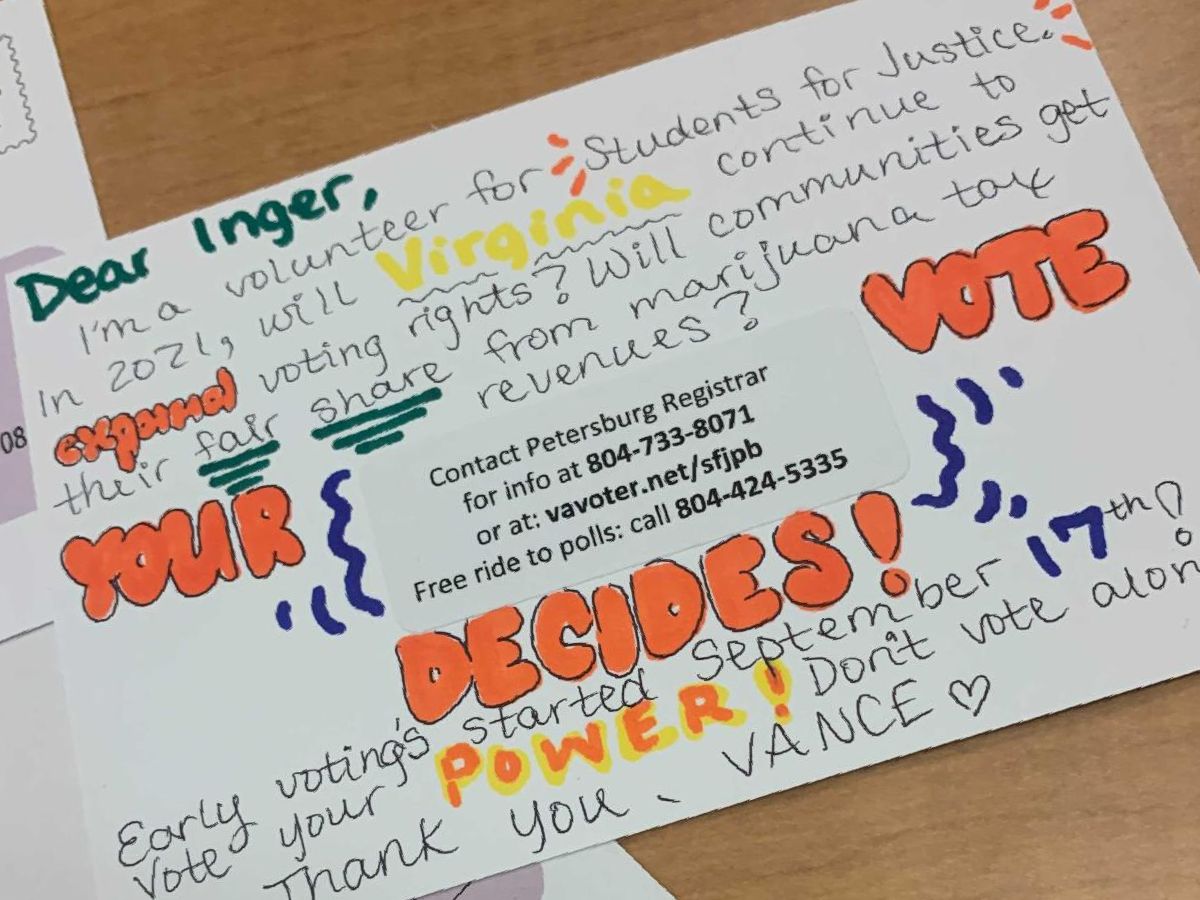 Dear Inger,
I'm a volunteer for Students for Justice.
In 2021, will Virginia continue to
expand voting rights? Will communities get
their fair share from marijuana tax
revenues?
YOUR VOTE
Contact Petersburg Registrar
for info at 804-733-8071
or at: vavoter.net/sfjpb
Free ride to polls: call 804-424-5335
DECIDES!
Early voting's started September 17th!
Vote your POWER! Don't vote alon
Thank you, VANCE ♡
08